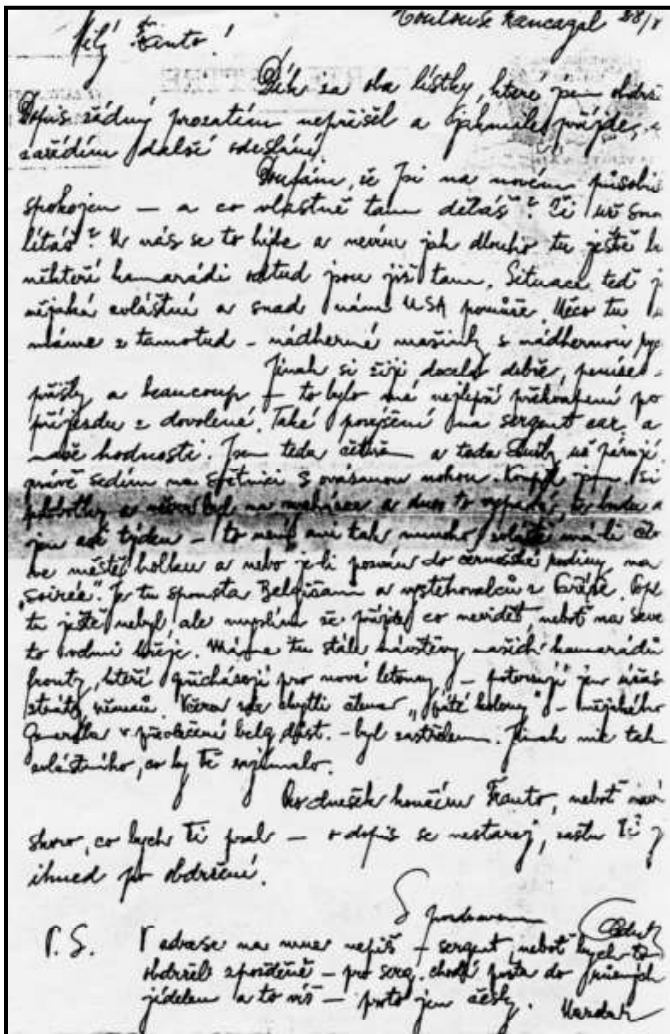 Toulouse Francazal 28/
Milý Fanto!
Dík za oba lístky, které jsem obdrž
Dopis žádný prozatím nepřišel a jakmile přijde,
zařídím další odeslání.
Doufám, že jsi na novém působi
spokojen — a co vlastně tam děláš? Či už sno
lítáš? U nás se to hýbe a nevím jak dlouho tu ještě
někteří kamarádi odtud jsou již tam. Situace teď
nějaká zvláštní a snad nám USA pomůže. Něco tu
máme z tamotud - nádherné mašinky s nádhernou
Jinak si žiji docela dobře, peníze -
přišly a beaucoup — to bylo mé nejlepší překvapení po
příjezdu z dovolené. Také povýšení na sergent a
nové hodnosti. Jsem teda a teda už
právě sedím na světnici s ovázanou nohou. Koupil jsem si
na a dnes to vypadá, že budu
jen asi týden — to není ani tak mnoho, zvláště má-li
ve městě holku a nebo je-li pozván do černošské rodiny na
„soirée". Je tu spousta Belgičanů a vystěhovalců z
tu ještě nebyl ale myslím že přijde co nevidět, neboť na seve
to vře. Máme tu stále návštěvy našich kamarádů
fronty, kteří přicházejí pro nové letouny — potvrzují jen úžas
ztráty němců. Včera zde chytli člena „páté kolony" — nějakého
v převlečení belg. důst. - byl zastřelen. Jinak nic tak
zvláštního, co by Tě zajímalo.
Pro dnešek končím Fanto, neboť není
skoro, co bych Ti psal — o dopis se nestarej, zašlu Ti
ihned po obdržení.
S pozdravem
P. S. V adrese na mne nepiš — sergent, neboť bych to
obdržel zpožděně — pro serg. chodí pošta do
jídelen a to víš — proto jen česky. Nazdar